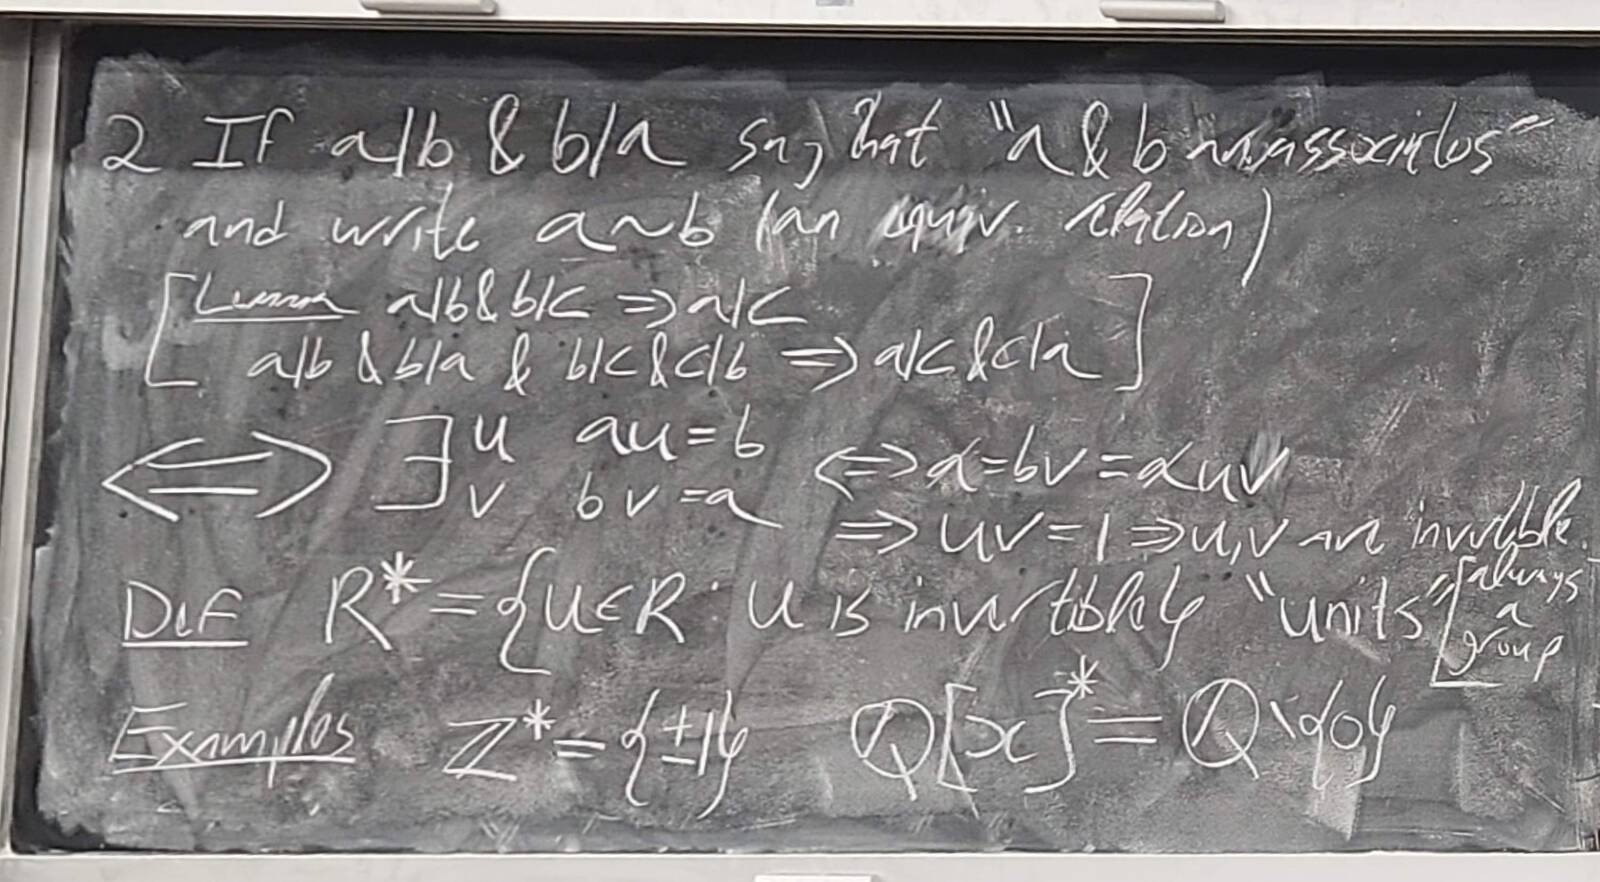 2 If a|b & b|a say that "a & b are associates"
and write a~b (an equiv. relation)
[Lemma a|b & b|c ⇒ a|c
a|b & b|a & b|c & c|b ⇒ a|c & c|a]
⇔ ∃ u au=b ⇔ a=bv=auv
v bv=a ⇒ uv=1 ⇒ u,v are invertible.
Def R*={u∈R : u is invertible} "units" [always a group
Examples Z*={±1} Q[x]*=Q\{0}